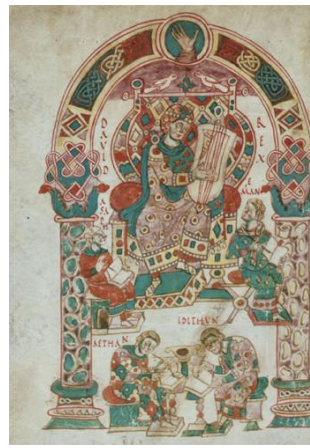 DAVID
REX
ASAPH
EMAN
IDITHUN
AETHAN